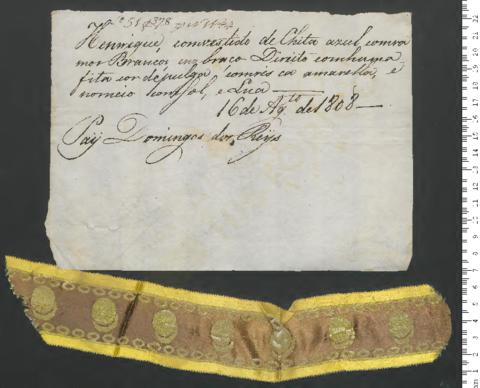 Henrique, com vestido de Chita azul com ra
mos Brancos, no braço Direito com huma
fita cor de pulga, com risca amarella, e
no meio hum Sol, e Lua
16 de Ag.to de 1808
Pay Domingos dos Reys